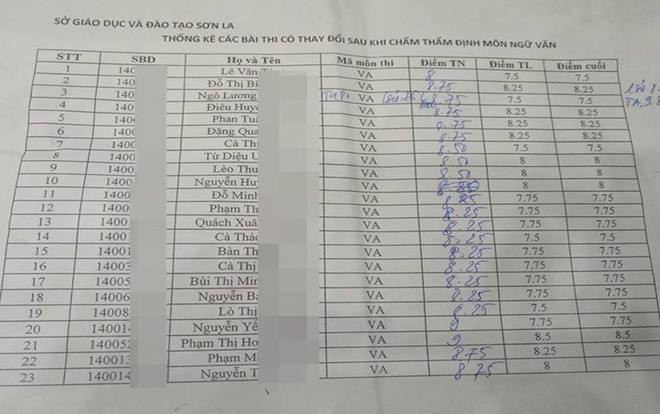 SỞ GIÁO DỤC VÀ ĐÀO TẠO SƠN LA
THỐNG KÊ CÁC BÀI THI CÓ THAY ĐỔI SAU KHI CHẤM THẨM ĐỊNH MÔN NGỮ VĂN
STT SBD Họ và Tên Mã môn thi Điểm TN Điểm TL Điểm cuối
1 140 Lê Văn VA 8 7.5 7.5
2 140 Đỗ Thị Bí VA 8.75 8.25 8.25
3 140 Ngô Lương VA 8.75 7.5 7.5
4 140 Điêu Huyề VA 8.75 8.25 8.25
5 140 Phan Tuấ VA 8.75 8.25 8.25
6 140 Đặng Qua VA 8.75 8.25 8.25
7 140 Cà Thị VA 8.50 7.5 7.5
8 1400 Từ Diệu U VA 8.50 8 8
9 1400 Lèo Thu VA 8.50 8 8
10 1400 Nguyễn Huy VA 8 8
11 1400 Đỗ Minh VA 8.25 7.75 7.75
12 1400 Phạm Th VA 8.25 7.75 7.75
13 1400 Quách Xuâ VA 8.25 7.75 7.75
14 1400 Cà Thảo VA 8.25 7.5 7.5
15 14001 Bàn Th VA 8.25 7.75 7.75
16 14003 Cà Thị VA 8.25 7.75 7.75
17 14005 Bùi Thị Min VA 8.25 7.75 7.75
18 14006 Nguyễn Bá VA 8.25 7.75 7.75
19 14008 Lò Thị VA 8.25 7.5 7.5
20 140014 Nguyễn Yế VA 9 7.75 7.75
21 140052 Phạm Thị Ho VA 9 8.5 8.5
22 140013 Phạm M VA 8.75 8.25 8.25
23 140014 Nguyễn T VA 8.75 8 8